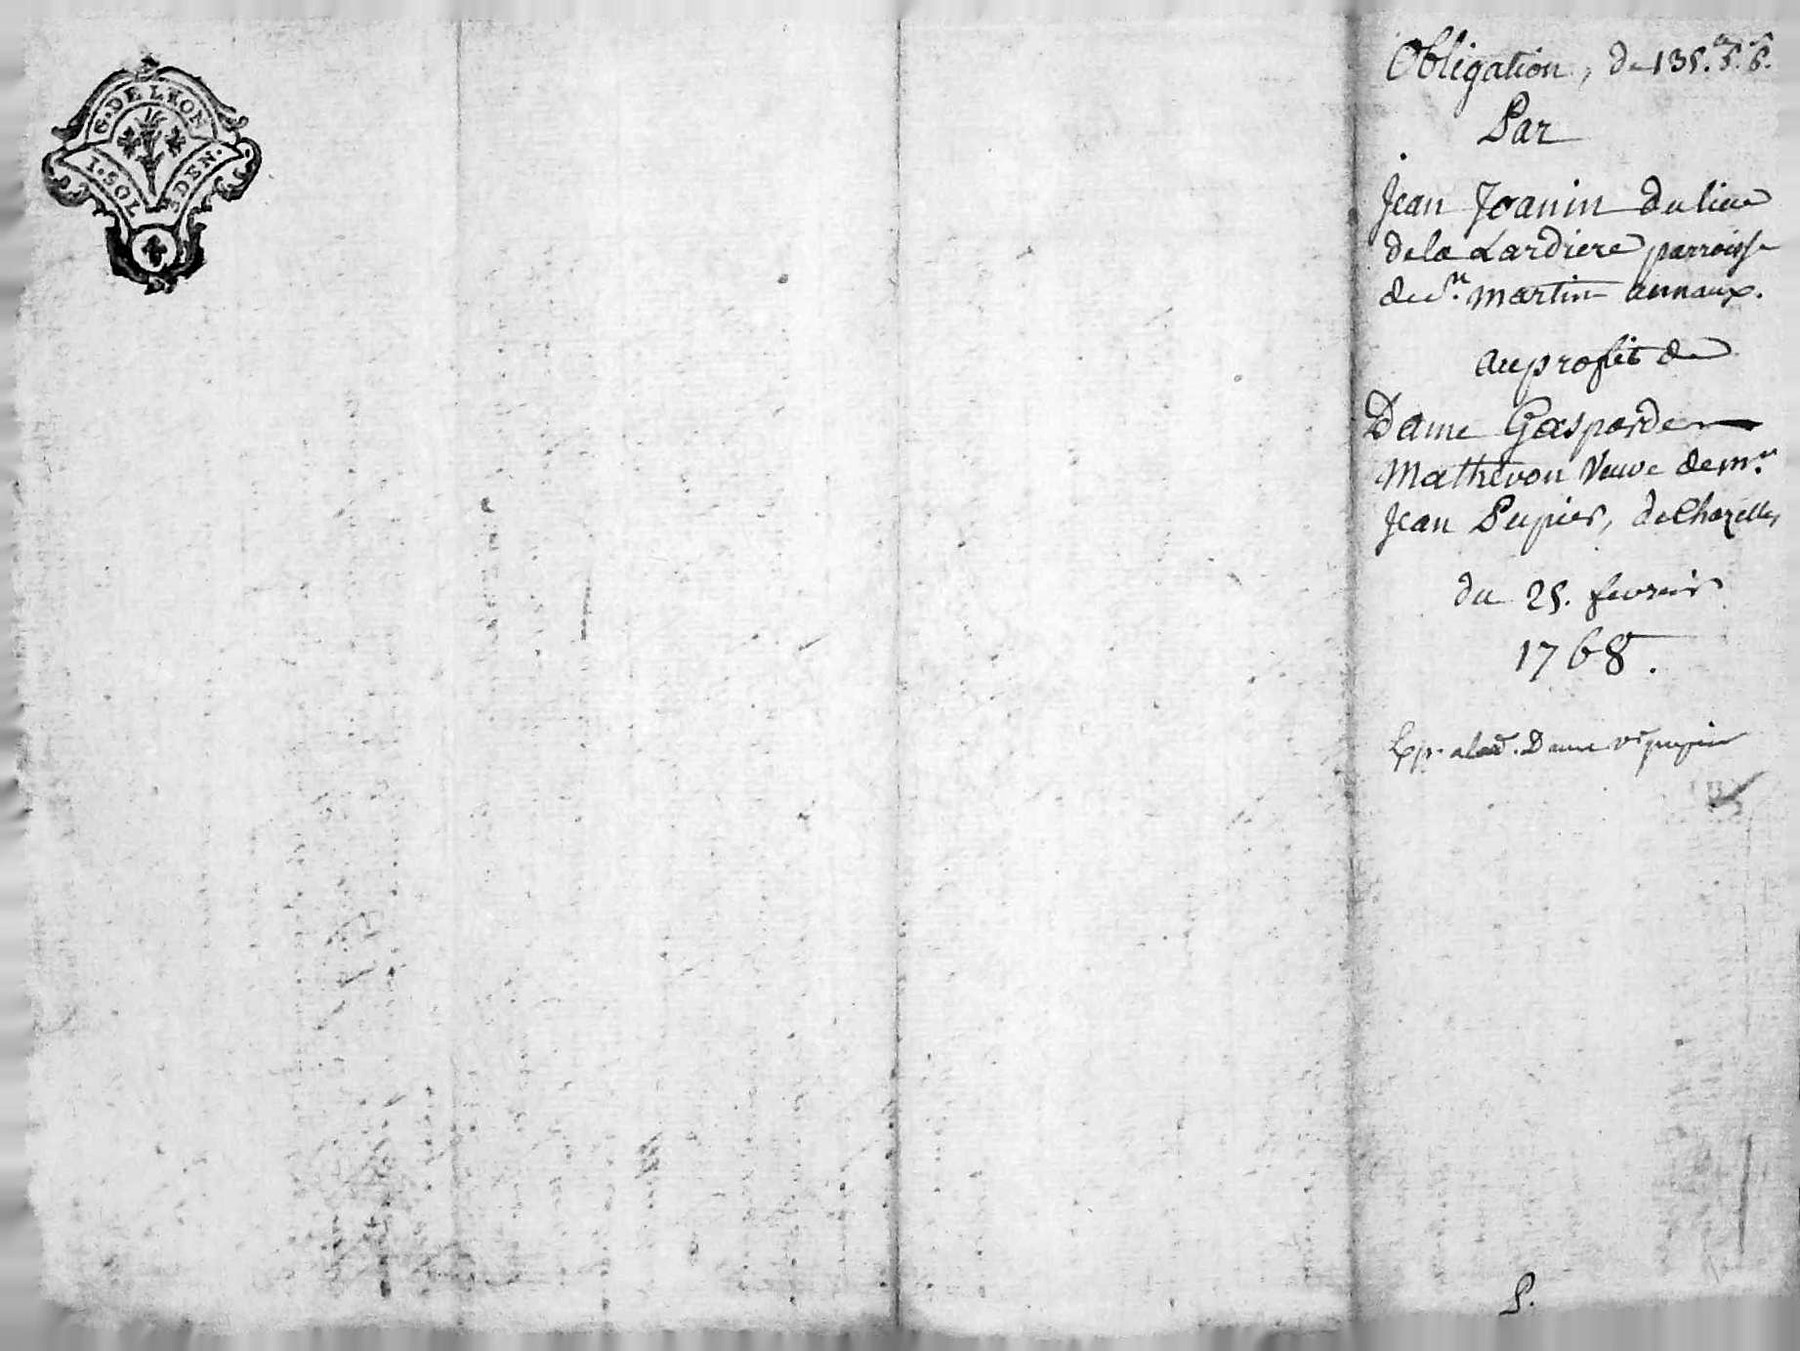 G. DE LYON
I. SOL 3 DEN.
Obligation, de 135.# 5.s 6.
Par
Jean Joanin du lieu
de la Lardiere parroisse
de St. martin annaux.
au profit de
Dame Gasparde
Mathevon Veuve de mr.
Jean Pupier, de Chazelles
du 25. fevrier
1768.
Exp. a lad. Dame ve pupier